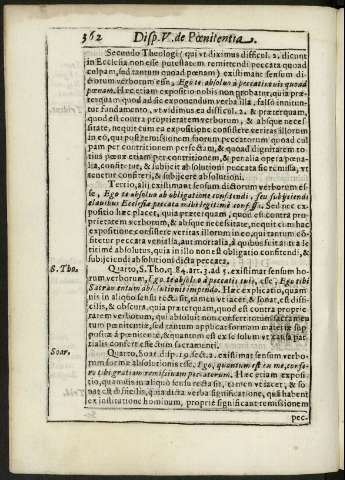 362 Disp. V. de Pœnitentia.
Secundo Theologi (qui vt diximus difficul. 2. dicunt
in Ecclesia non esse potestatem remittendi peccata quoad
culpam, sed tantum quoad pœnam) existimant sensum di-
ctorum verborum esse, Ego te absoluo à peccatis tuis quoad
pœnam. Hæc etiam expositio nobis non probatur, quia præ-
terquam quod ad sic exponendum verba illa, falso innitun-
tur fundamento, vt vidimus ea difficul. 2. & præterquam,
quod est contra proprietatem verborum, & absque neces-
sitate, nequit cum ea expositione consistere veritas illorum
in eo, qui post remissionem suorum peccatorum quoad cul
pam per contritionem perfectam, & quoad dignitatem to-
tius pœnæ etiam per contritionem, & per alia opera pœna-
lia, confitetur, & subijcit absolutioni peccata sic remissa, vt
tenetur confiteri, & subijcere absolutioni.
Tertio, alij existimant sensum dictorum verborum es-
se, Ego te absoluo ab obligatione confitendi, seu subijciendi
clauibus Ecclesiæ peccata mihi legitimè confessa. Sed nec ex-
positio hæc placet, quia præterquam, quod est contra pro-
prietatem verborum, & absque necessitate, nequit cum hac
expositione consistere veritas illorum in eo, qui tantum cõ-
fitetur peccata venialia, aut mortalia, à quibus fuit aliàs le-
titimè absolutus, quia in illo non est obligatio confitendi, &
subijciendi absolutioni dicta peccata.
S. Tho. Quarto, S. Tho. q. 84. art. 3. ad 5. existimat sensum ho-
rum verborum, Ego te absoluo à peccatis tuis, esse, Ego tibi
Sacramentum absolutionis impendo. Hæc explicatio, quam-
uis in aliquo sensu recta sit, tamen vt iacet, & sonat, est diffi-
cilis, & obscura, quia præterquam, quod est contra proprie-
tatem verborum, qui absoluit non confert omnem Sacramen
tum pœnitentiæ, sed tantum applicat formam materiæ sup-
positæ à pœnitente, & quantum est ex se solum vt causa par-
tialis confert esse dicto sacramento.
Soar. Quarto, Soar. disp. 19. sect. 2. existimat sensum verbo-
rum formæ absolutionis esse, Ego, quantum est ex me, confe-
ro tibi gratiam remissiuam peccatorum. Hæc etiam exposi-
tio, quamuis in aliquo sensu recta sit, tamen vt iacet, & so-
nat est difficilis, quia dicta verba significatione, quã habent
ex institutione hominum, propriè significant remissionem
pec-